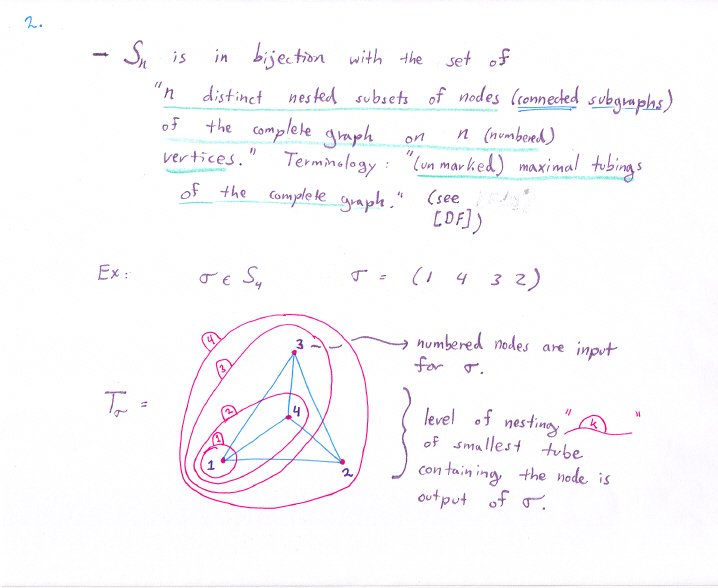 2.
- Sn is in bijection with the set of
"n distinct nested subsets of nodes (connected subgraphs)
of the complete graph on n (numbered)
vertices." Terminology: "(un marked) maximal tubings
of the complete graph." (see
[DF])
Ex: σ ∈ S4 σ = (1 4 3 2)
4
3
3 → numbered nodes are input
for σ.
Tσ =
2
4
1
1
2
level of nesting " k "
of smallest tube
containing the node is
output of σ.